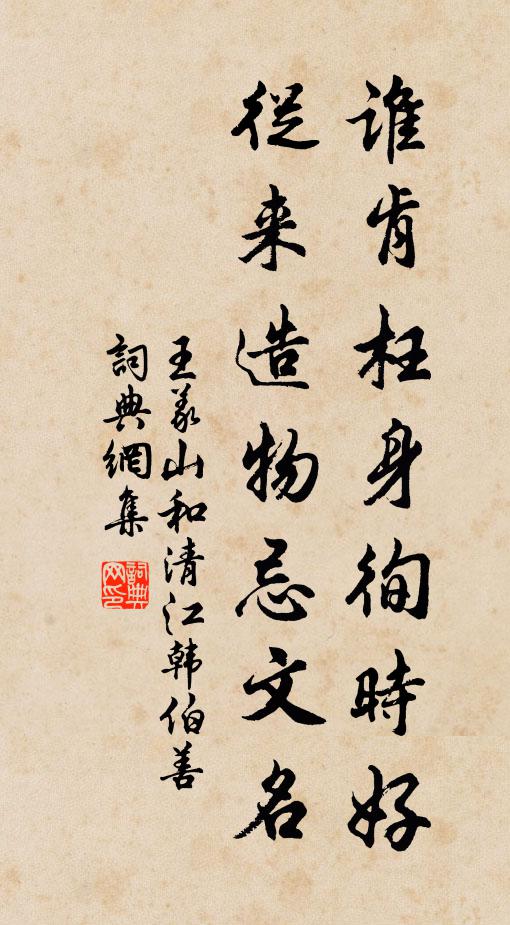 誰肯枉身徇時好
從来造物忌文名
王義山和清江韩伯善
詞典網集
詞典网印